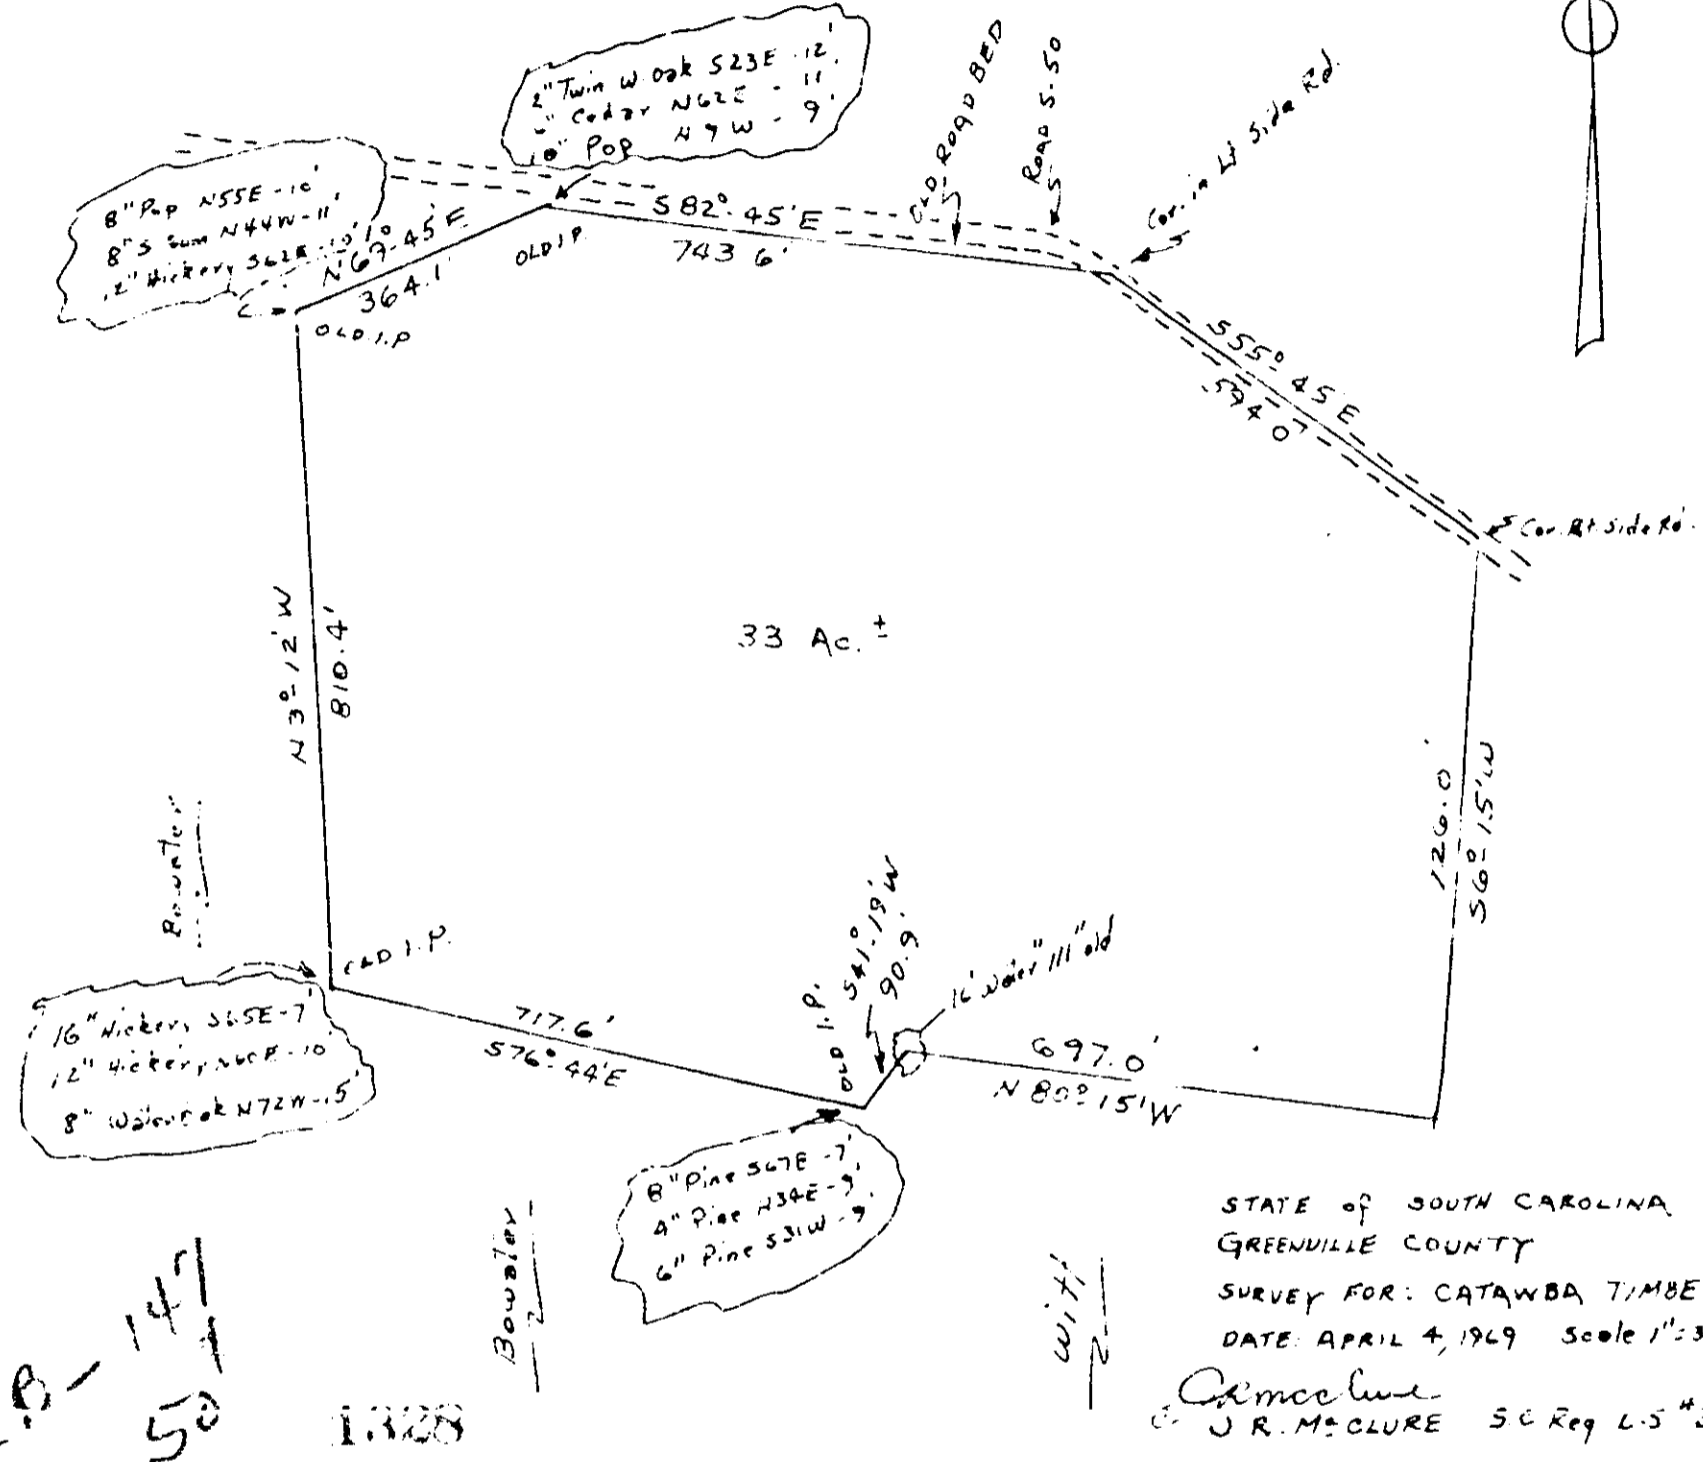 2" Twin W. Oak S23E - 12'
" Cedar N62E - 11'
10" Pop N9W - 9'
OLD ROAD BED
ROAD S-50
Cor. in Lt Side Rd.
8" Pop N55E - 10'
8" S Gum N44W - 11'
12" Hickery S62E - 10'
N 67° 45' E
364.1
OLD I.P.
OLD I.P
S 82° - 45' E
743 6'
S 55° 45 E
594 0'
Cor. Rt. Side Rd.
33 Ac. ±
N 3° - 12' W
810.4'
126.0'
S 6° - 15' W
Bowater
OLD I.P.
16" Hickery S65E - 7'
12" Hickery N60E - 10'
8" Water Oak N72W - 15'
717.6'
S 76° 44' E
OLD I.P.
S 41° - 19' W
90.9'
16" Water "111" old
697.0'
N 80° 15' W
8" Pine S67E - 7'
4" Pine N34E - 9'
6" Pine S31W - 9'
Bowater
Witt
STATE of SOUTH CAROLINA
GREENVILLE COUNTY
SURVEY FOR: CATAWBA TIMBE
DATE: APRIL 4, 1969 Scale 1" = 3
J R. McCLURE S.C Reg L.S #
B - 147
50
1328